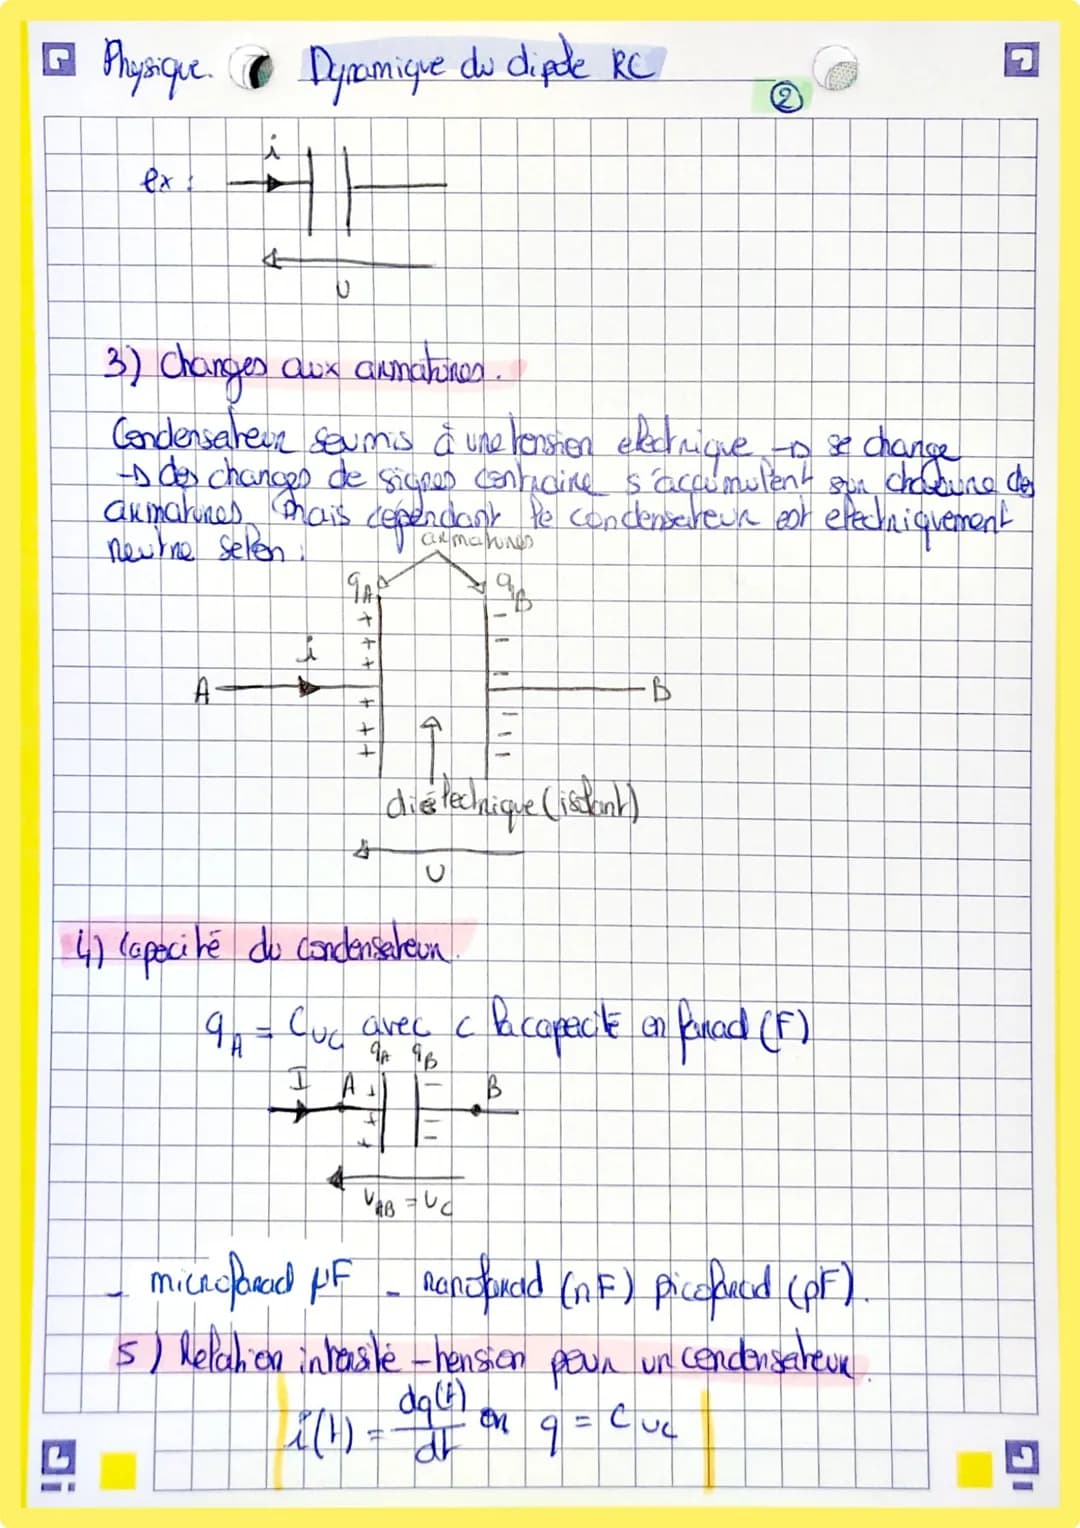 Physique. Dynamique du dipole RC
2
ex :
i
U
3) Charges aux armatures.
Condensateur soumis à une tension electrique → se charge
→ des charges de signes contraire s'accumulent sur chacune des
armatures. Mais cependant le condensateur est electriquement
neutre selon :
armatures
qA qB
i
A B
diélectrique (isolant)
U
4) Capacité du condensateur.
qA = Cuc avec c la capacité en farad (F)
qA qB
I A B
UAB = UC
- microfarad µF - nanofarad (nF) picofarad (pF).
5) Relation intensité - tension pour un condensateur.
i(t) = dq(t)/dt or q = Cuc